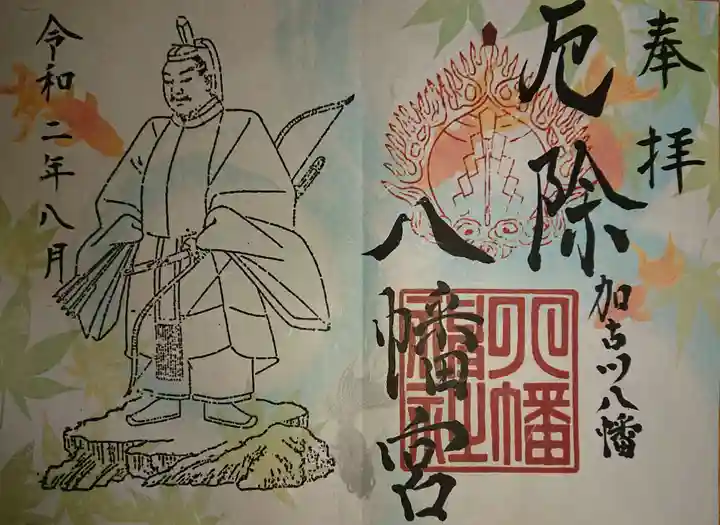 奉拝
厄除
八幡宮
加古川八幡
八幡
令和二年八月